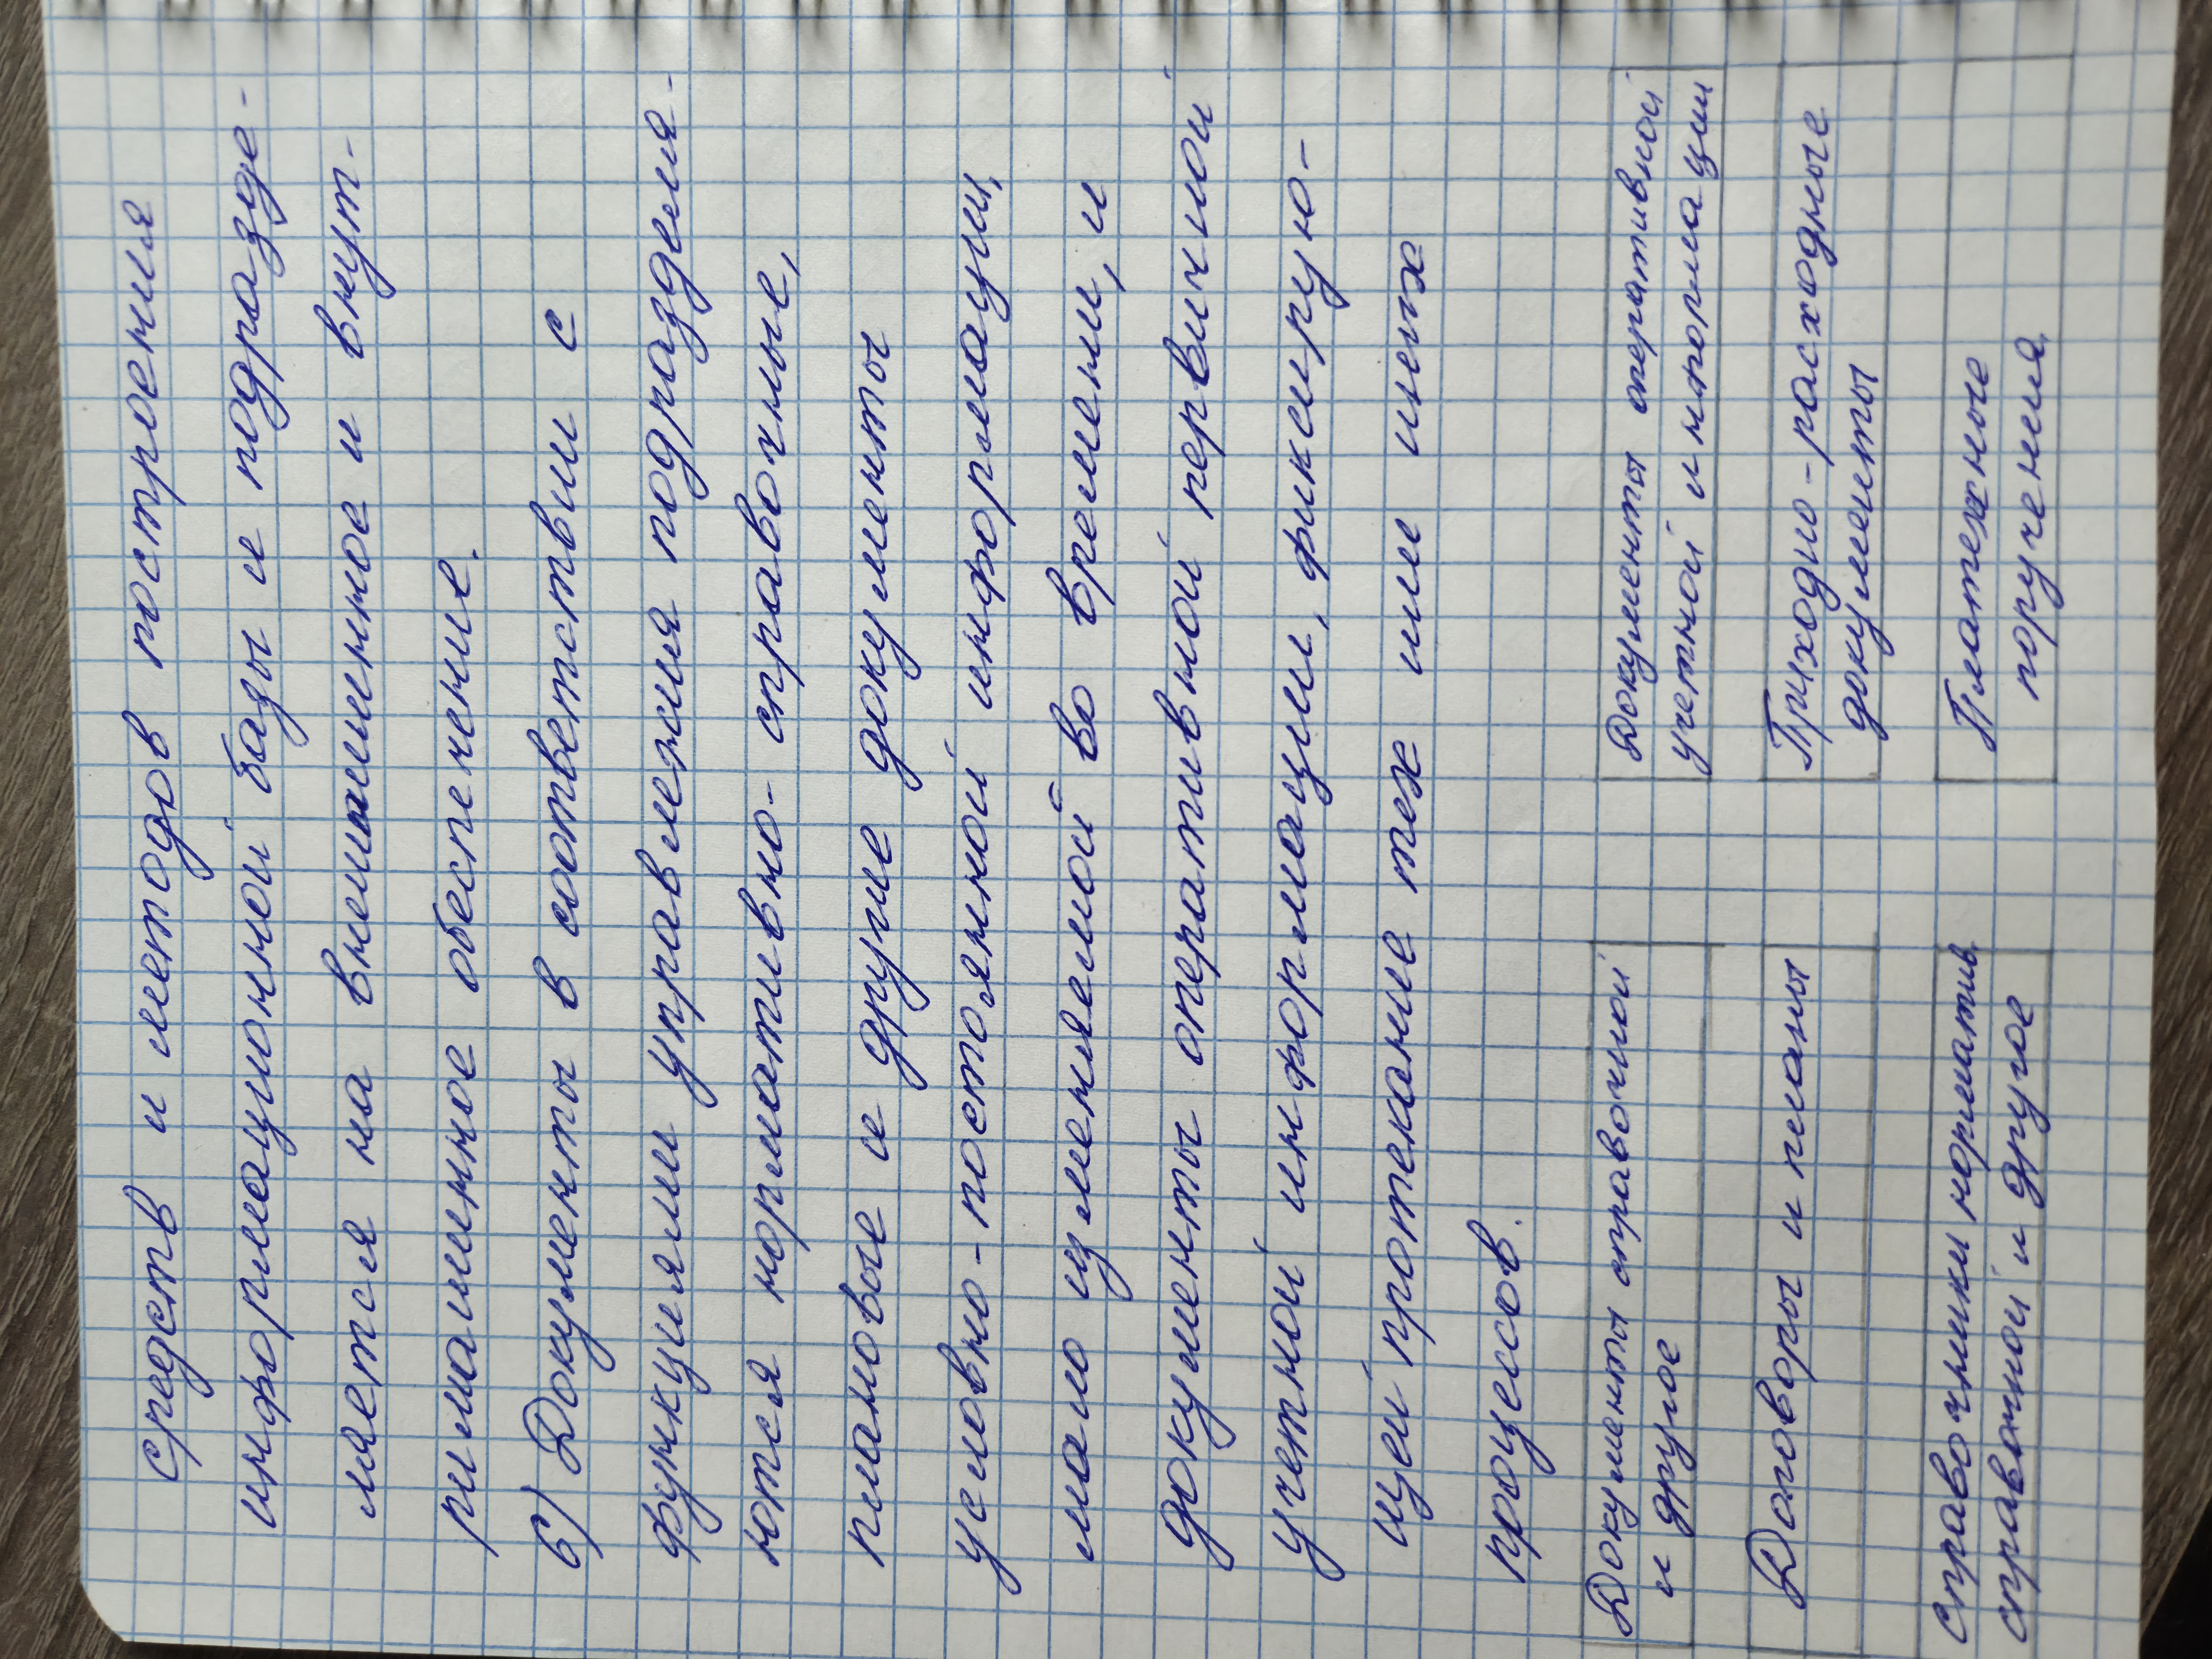 средств и методов построения
информационной базы и подразде-
ляется на внемашинное и внут-
римашинное обеспечение.
6) Документы в соответствии с
функциями управления подразделя-
ются нормативно-справочные,
плановые и другие документы
условно-постоянной информации,
мало изменяемой во времени, и
документы оперативной первичной
учетной информации, фиксирую-
щей протекание тех или иных
процессов.
Документы справочной
и другое
Документы оперативной
учетной информации
Договоры и планы
Приходно-расходные
документы
Справочники норматив
справочной и другое
Платежные
поручения